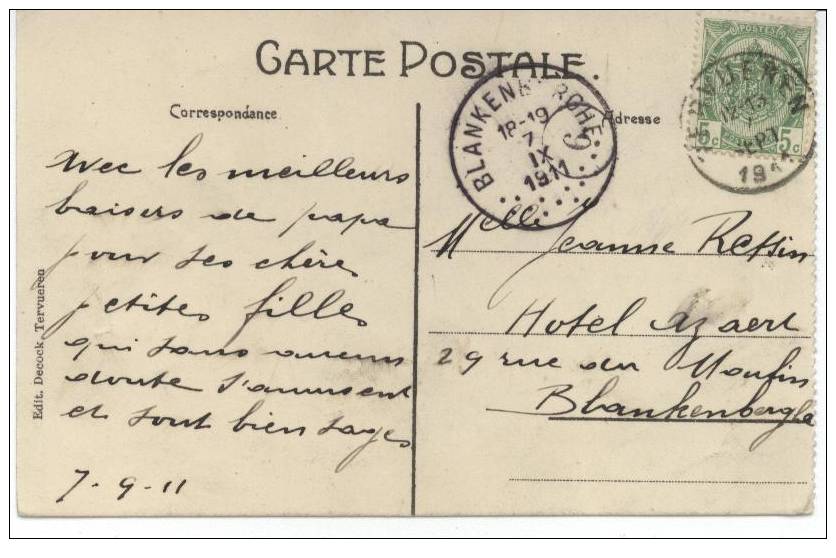 CARTE POSTALE.
Correspondance
Adresse
POSTES
5c 5c
TERVUEREN
12-13
SEPT
19
BLANKENBERGHE
18-19
7
IX
1911
9
Avec les meilleurs
baisers de papa
pour ses chères
petites filles
qui sans aucun
doute s'amusent
et sont bien sages
7-9-11
Melle Jeanne
Hotel
29 rue du Moulin
Blankenberghe
Edit. Decock, Tervueren